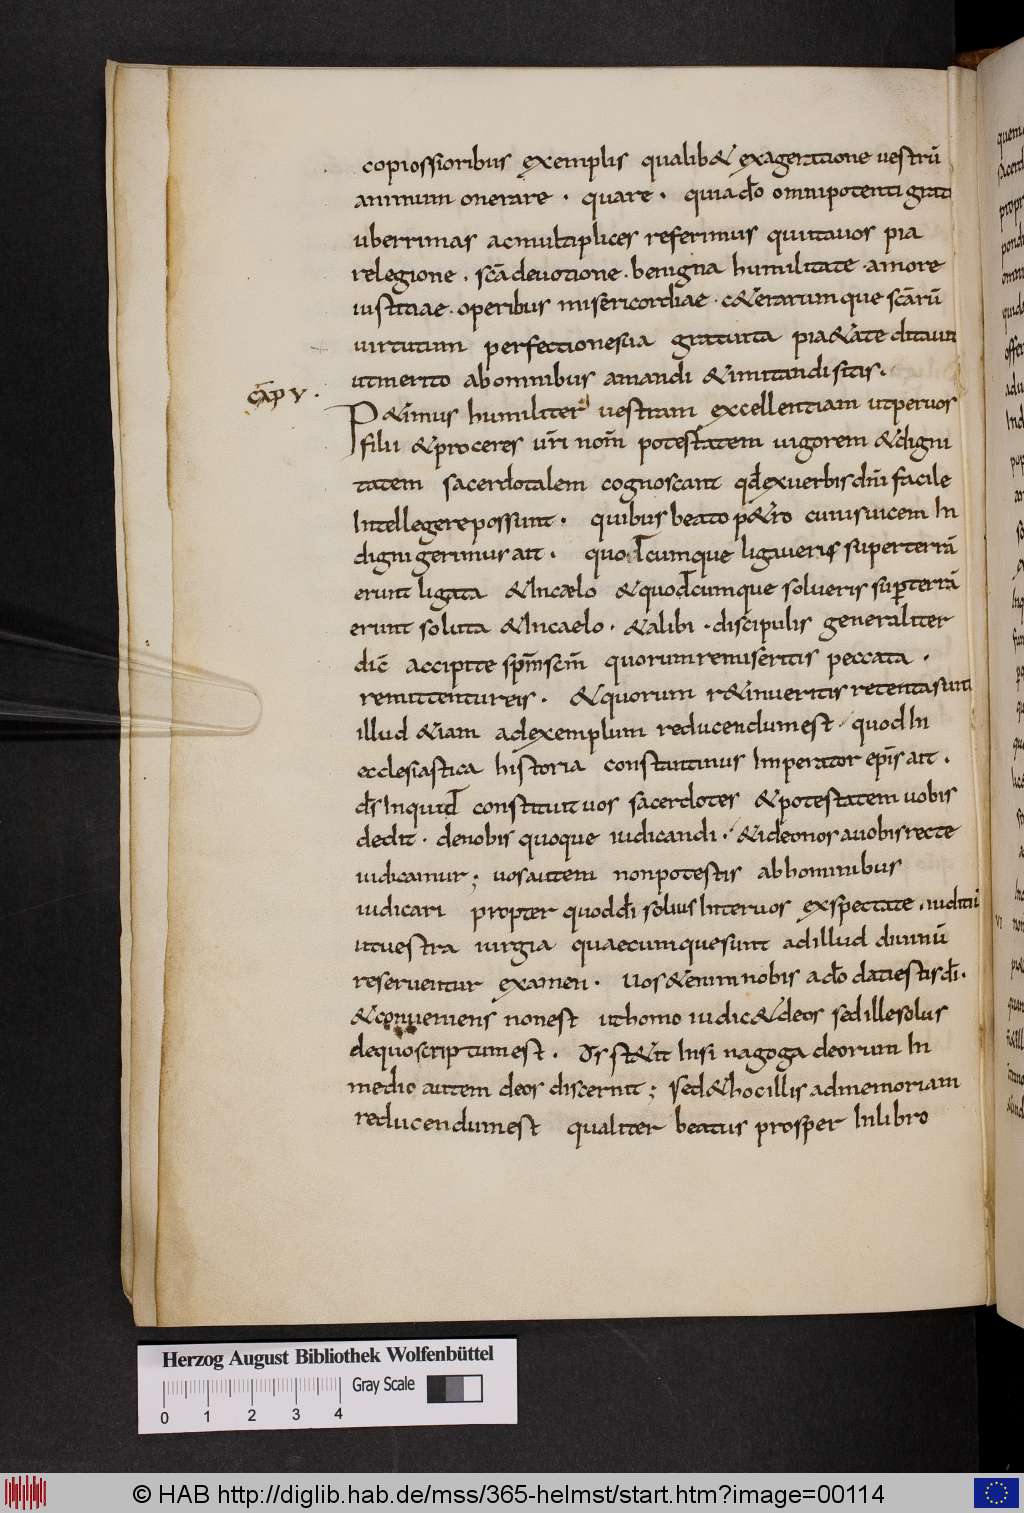 copiossioribus exemplis qualib& exageratione uestrū
animum onerare · quare · quia do̅ omnipotenti grat
uberrimas ac multiplices referimus qui tauos pia
relegione · scā deuotione · benigna humilitate · amore
iustitiae · operibus misericordiae · c&erarum que scārū
uirtutum perfectione sua gratuita pia&ate ditauit
ut merito ab omnibus amandi &imitandi sitis ·
cāp v ·
P&imus humiliter uestram excellentiam ut per uos
filii &proceres ur̅i nom̅ potestatem uigorem &digni
tatem sacerdotalem cognoscant qd̅ ex uerbis dn̅i facile
Intellegere possunt · quibus beato p&ro cuius uicem In
digni gerimus ait · quodcumque ligaueris super terrā
erunt ligata &In cælo &quodcumque solueris sup̅ terrā
erunt soluta &In caelo · &alibi · discipulis generaliter
dic̅ accipite sp̅m scm̅ quorum remiseritis peccata ·
remittentur eis · &quorum r&inueritis retenta sunt
illud &iam ad exemplum reducendum est · quod In
ecclesiastica historia constantinus Imperator epi̅s ait ·
ds̅ Inquid constituit uos sacerdotes &potestatem uobis
dedit · de nobis quoque iudicandi · &ideo nos a uobis recte
iudicamur ; uos autem non potestis ab hominibus
iudicari propter quod di̅ solius Inter uos exspectate · iuditiū
ut uestra iurgia quaecumque sunt ad illud diuinū
reseruentur examen · Uos &enim nobis a do̅ dati estis di̅ ·
&conueniens non est ut homo iudic& deos sed ille solus
de quo scriptum est · Ds̅ st&it In sinagoga deorum In
medio autem deos discernit ; Sed &hoc illis ad memoriam
reducendum est qualiter beatus prosper In libro
vi
Herzog August Bibliothek Wolfenbüttel
Gray Scale
0 1 2 3 4
© HAB http://diglib.hab.de/mss/365-helmst/start.htm?image=00114